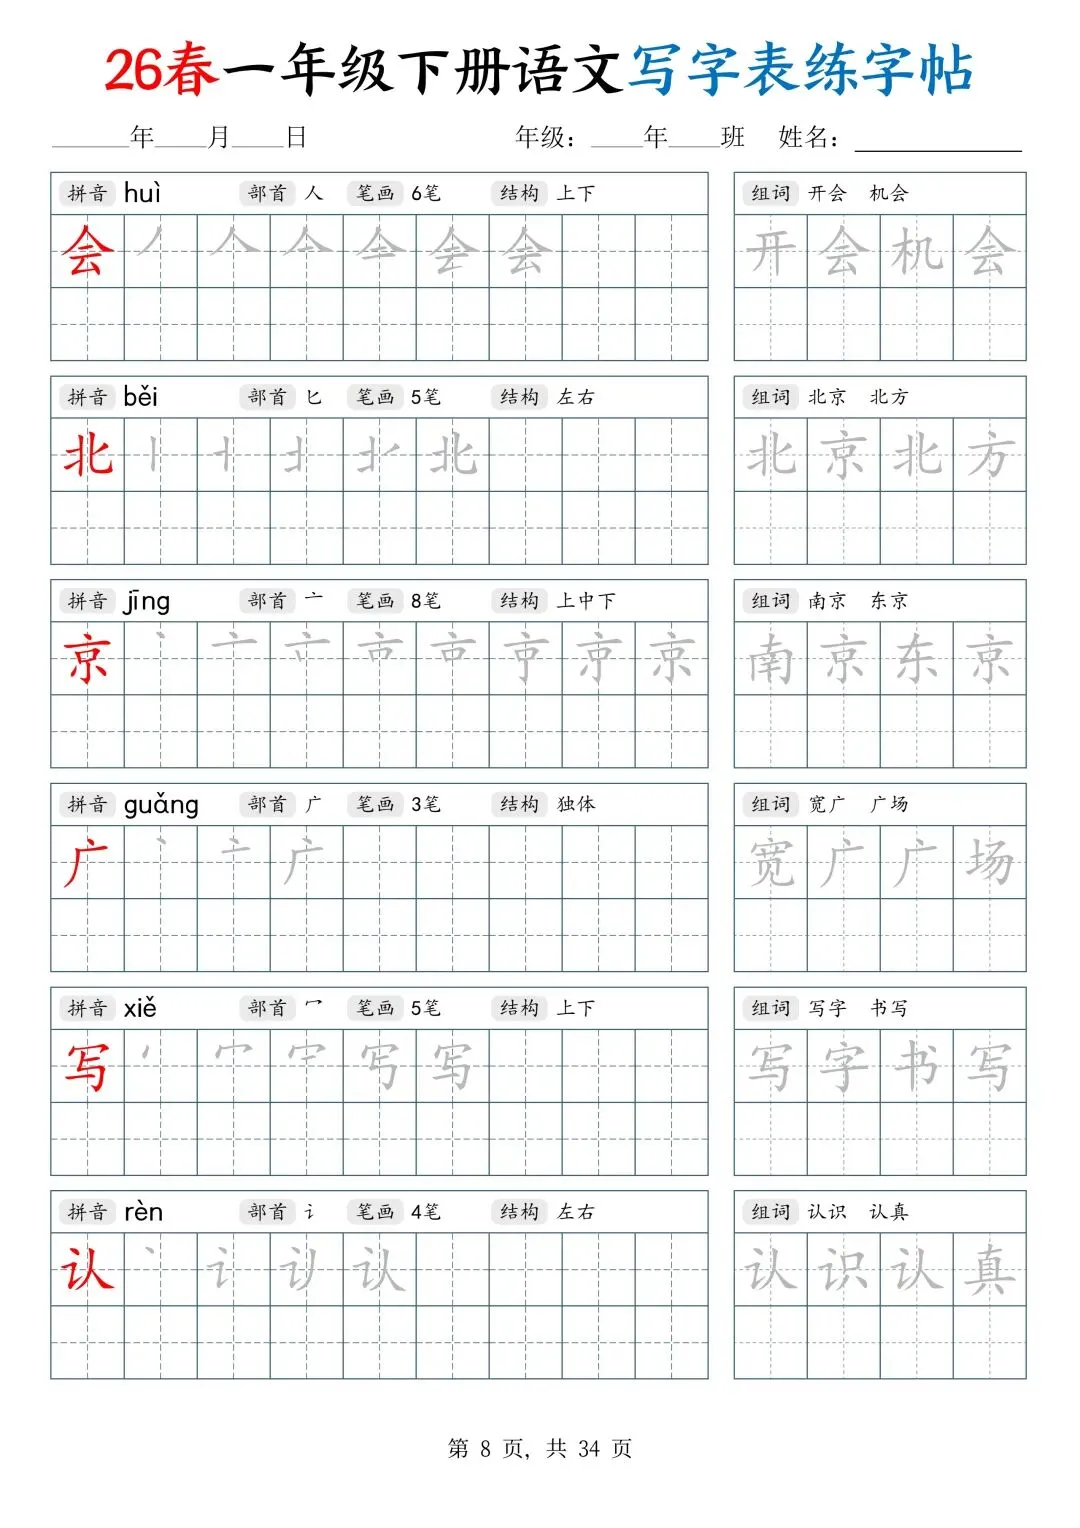 26春一年级下册语文写字表练字帖
____年____月____日 年级：____年____班 姓名：____________
拼音 huì 部首 人 笔画 6笔 结构 上下 组词 开会 机会
会 开会机会
拼音 běi 部首 匕 笔画 5笔 结构 左右 组词 北京 北方
北 北京北方
拼音 jīng 部首 亠 笔画 8笔 结构 上中下 组词 南京 东京
京 南京东京
拼音 guǎng 部首 广 笔画 3笔 结构 独体 组词 宽广 广场
广 宽广广场
拼音 xiě 部首 冖 笔画 5笔 结构 上下 组词 写字 书写
写 写字书写
拼音 rèn 部首 讠 笔画 4笔 结构 左右 组词 认识 认真
认 认识认真
第 8 页，共 34 页